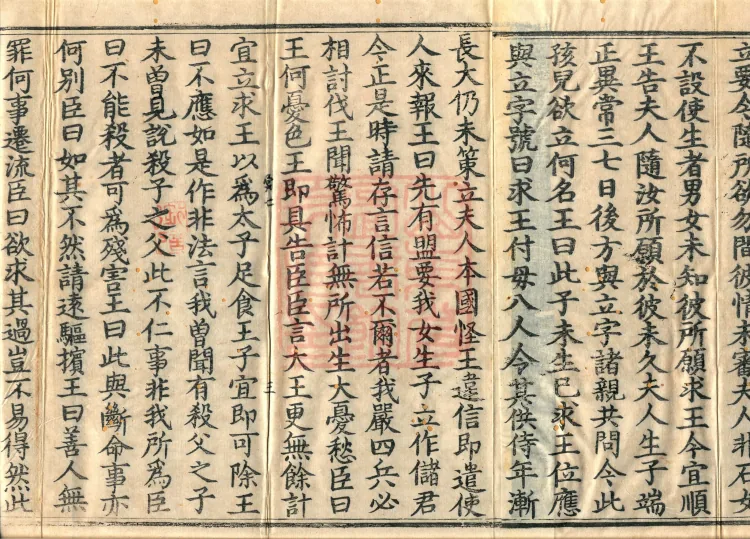 立要令隨所欲勿間彼情未審夫人非石女
不設使生者男女未知彼所願求王今宜順
王告夫人隨汝所願於彼未久夫人生子端
正異常三七日後方與立字諸親共問今此
孩兒欲立何名王曰此子未生已求王位應
與立字號曰求王付母八人令其供侍年漸
長大仍未策立夫人本國怪王違信即遣使
人來報王曰先有盟要我女生子立作儲君
今正是時請存言信若不爾者我嚴四兵必
相討伐王聞驚怖計無所出生大憂愁臣曰
王何憂色王即具告臣臣言大王更無餘計
宜立求王以為太子足食王子宜即可除王
曰不應如是作非法言我曾聞有殺父之子
未曾見說殺子之父此不仁事非我所為臣
曰不能殺者可為殘害王曰此與斷命事亦
何別臣曰如其不然請遠驅擯王曰善人無
罪何事遷流臣曰欲求其過豈不易得然此
三